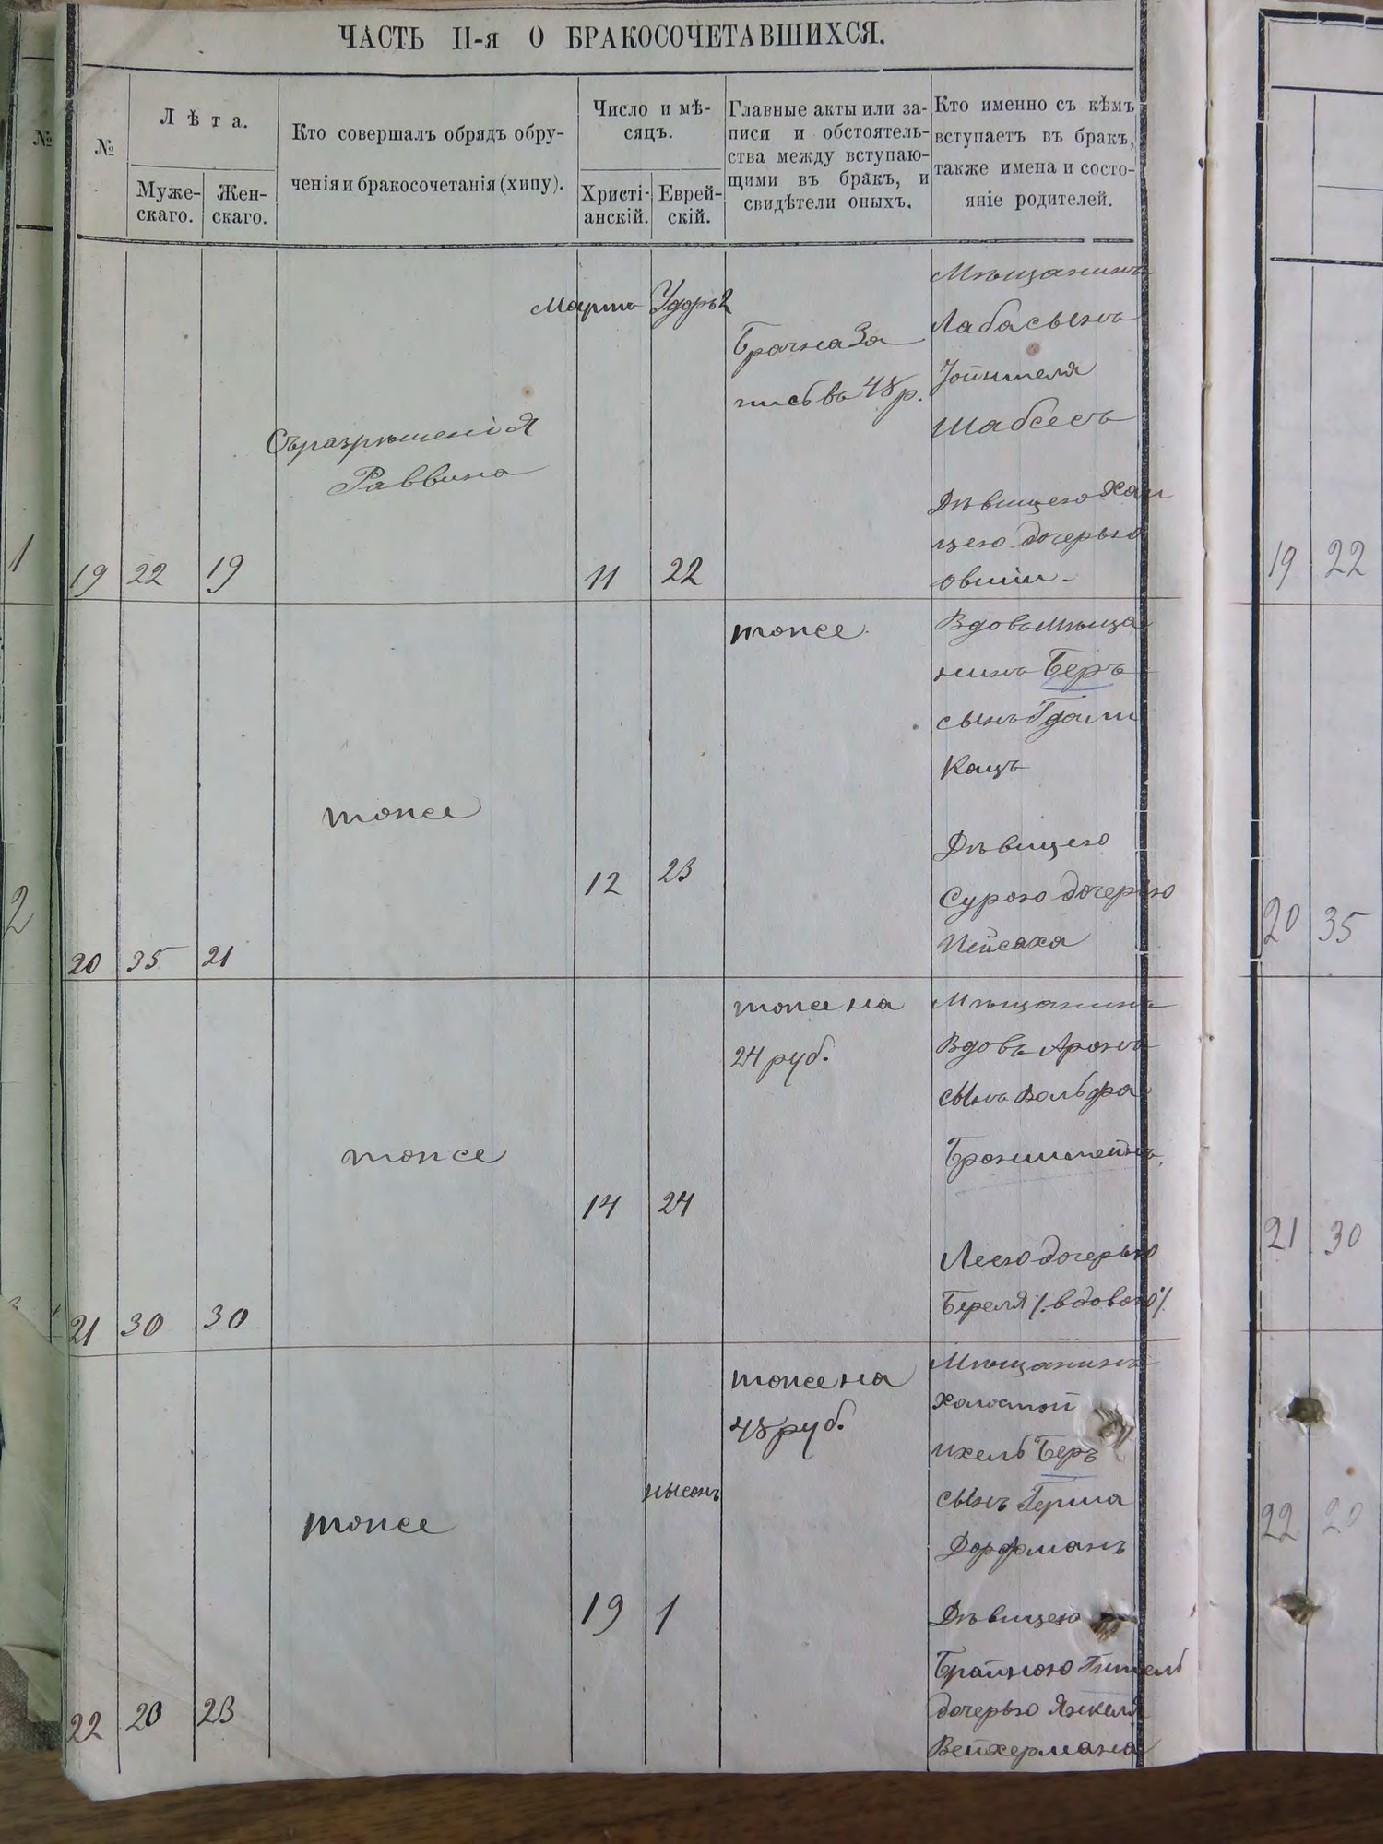 ЧАСТЬ II-я О БРАКОСОЧЕТАВШИХСЯ.
№
№
Лѣта.
Муже-
скаго.
Жен-
скаго.
Кто совершалъ обрядъ обру-
ченія и бракосочетанія (хипу).
Число и мѣ-
сяцъ.
Христі-
анскій.
Еврей-
скій.
Главные акты или за-
писи и обстоятель-
ства между вступаю-
щими въ бракъ, и
свидѣтели оныхъ.
Кто именно съ кѣмъ
вступаетъ въ бракъ,
также имена и состо-
яніе родителей.
1
19
22
19
Съ разрѣшенія
Раввина
Мартъ
11
22
Брачна За
пись въ 48 р.
Мѣщанинъ
сынъ
Шабсесъ
Дѣвицею Хаи
цею дочерью
19
22
2
20
35
21
тоже
12
23
тоже
Вдовъ Мѣща
нинъ Беръ
сынъ Гдали
Кацъ
Дѣвицею
Сурою дочерью
Пейсаха
20
35
21
30
30
тоже
14
24
тоже на
24 руб.
Мѣщанинъ
Вдовъ Аронъ
сынъ Вольфа
Бронштейнъ
Леею дочерью
Береля /. вдовою ./.
21
30
22
20
23
тоже
19
нисенъ
1
тоже на
48 руб.
Мѣщанинъ
Холостой
Ихель Беръ
сынъ Герша
Дорфманъ
Дѣвицею
Брайною
дочерью Янкеля
Вейхермана
22
20